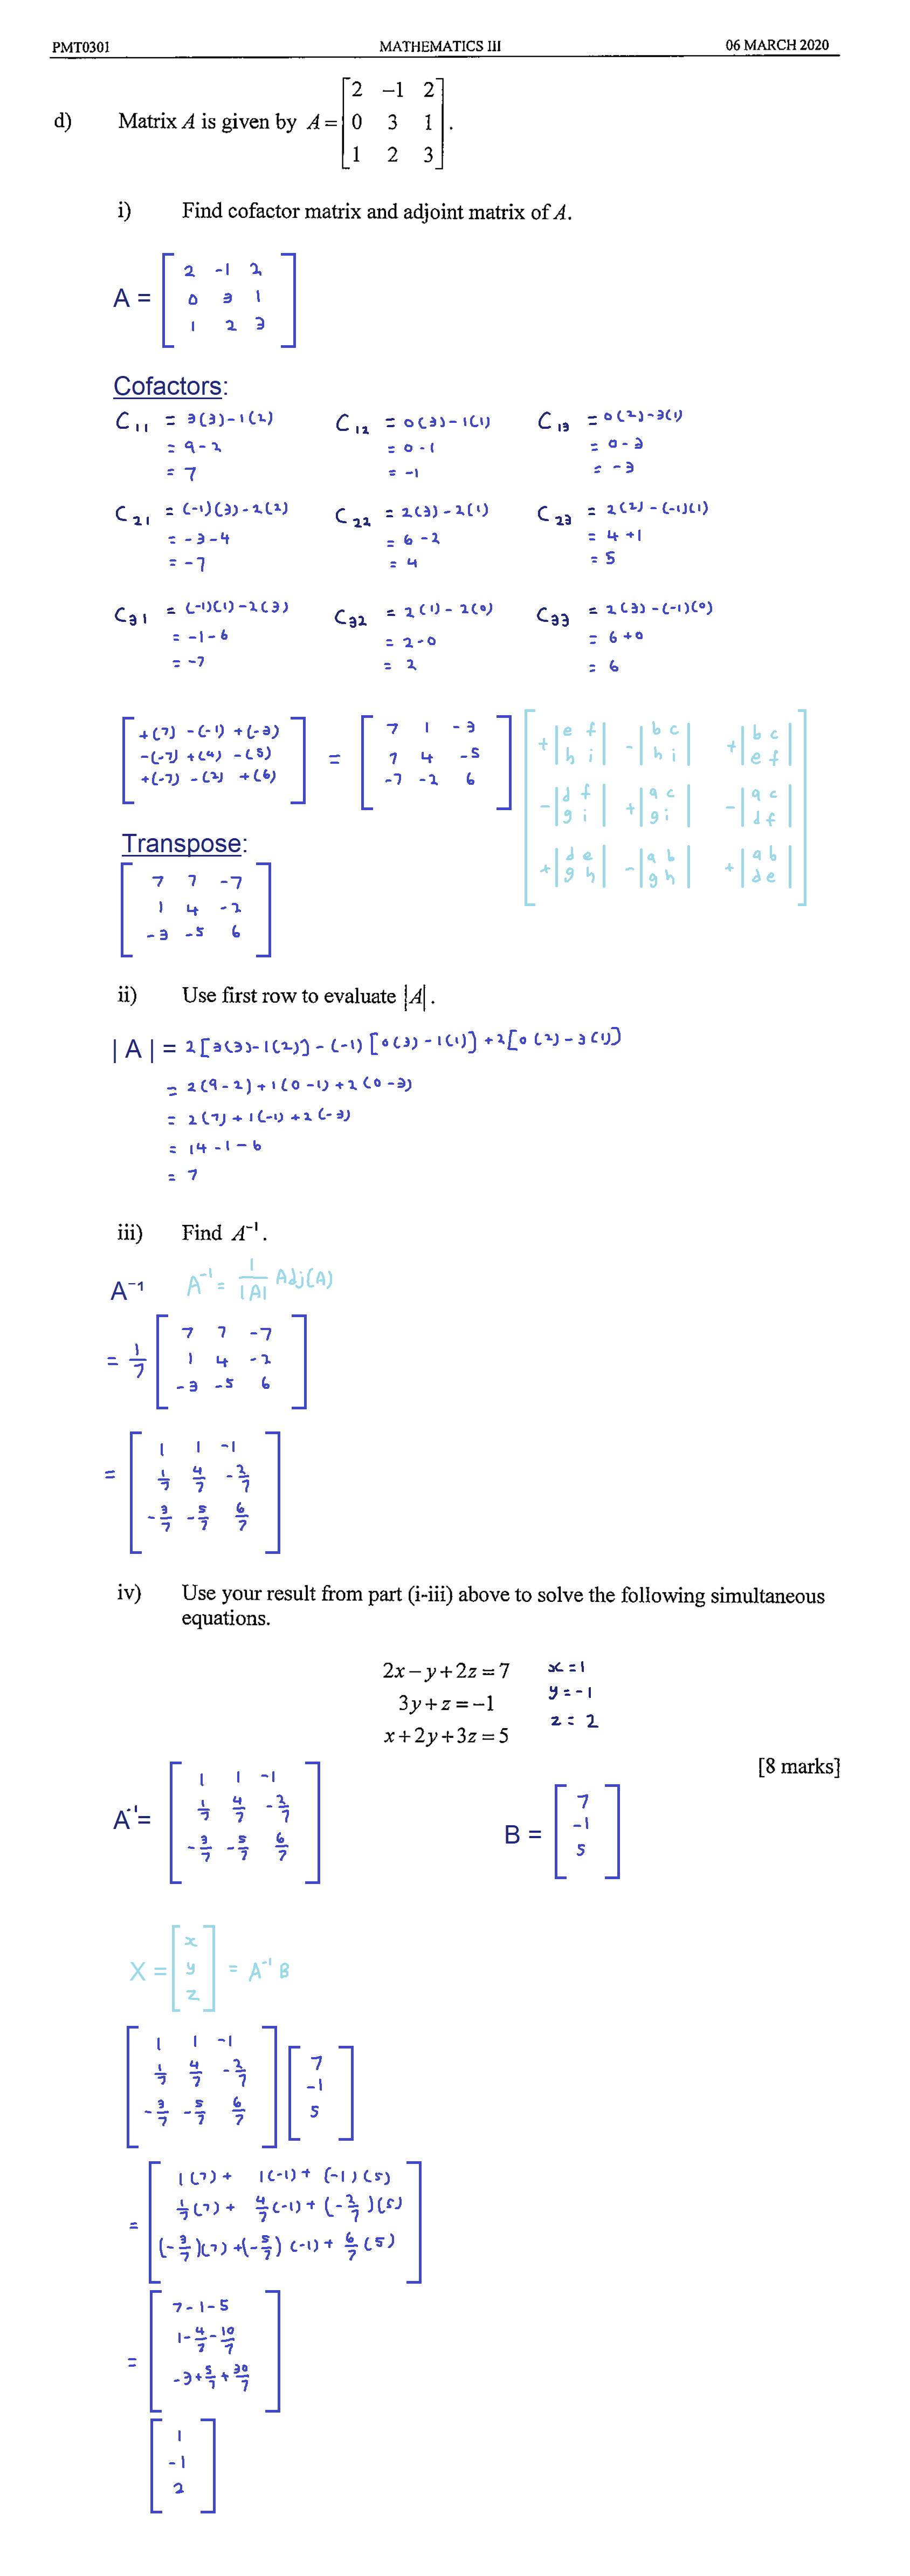 PMT0301 MATHEMATICS III 06 MARCH 2020
d) Matrix A is given by A = [2 −1 2
0 3 1
1 2 3].
i) Find cofactor matrix and adjoint matrix of A.
A = [2 -1 2
0 3 1
1 2 3]
Cofactors:
C11 = 3(3)-1(2) C12 = 0(3)-1(1) C13 = 0(2)-3(1)
= 9-2 = 0-1 = 0-3
= 7 = -1 = -3
C21 = (-1)(3)-2(2) C22 = 2(3)-2(1) C23 = 2(2)-(-1)(1)
= -3-4 = 6-2 = 4+1
= -7 = 4 = 5
C31 = (-1)(1)-2(3) C32 = 2(1)-2(0) C33 = 2(3)-(-1)(0)
= -1-6 = 2-0 = 6+0
= -7 = 2 = 6
[+(7) -(-1) +(-3)
-(-7) +(4) -(5)
+(-7) -(2) +(6)] = [7 1 -3
7 4 -5
-7 -2 6]
[+|e f
h i| -|b c
h i| +|b c
e f|
-|d f
g i| +|a c
g i| -|a c
d f|
+|d e
g h| -|a b
g h| +|a b
d e|]
Transpose:
[7 7 -7
1 4 -2
-3 -5 6]
ii) Use first row to evaluate |A|.
|A| = 2[3(3)-1(2)]-(-1)[0(3)-1(1)]+2[0(2)-3(1)]
= 2(9-2)+1(0-1)+2(0-3)
= 2(7)+1(-1)+2(-3)
= 14-1-6
= 7
iii) Find A⁻¹.
A⁻¹ A⁻¹ = 1/|A| Adj(A)
= 1/7 [7 7 -7
1 4 -2
-3 -5 6]
= [1 1 -1
1/7 4/7 -2/7
-3/7 -5/7 6/7]
iv) Use your result from part (i-iii) above to solve the following simultaneous
equations.
2x − y + 2z = 7 x = 1
3y + z = −1 y = -1
x + 2y + 3z = 5 z = 2
[8 marks]
A⁻¹ = [1 1 -1
1/7 4/7 -2/7
-3/7 -5/7 6/7]
B = [7
-1
5]
X = [x
y
z] = A⁻¹ B
[1 1 -1
1/7 4/7 -2/7
-3/7 -5/7 6/7] [7
-1
5]
= [1(7)+ 1(-1)+ (-1)(5)
1/7(7)+ 4/7(-1)+(-2/7)(5)
(-3/7)(7)+(-5/7)(-1)+ 6/7(5)]
= [7-1-5
1-4/7-10/7
-3+5/7+30/7]
[1
-1
2]